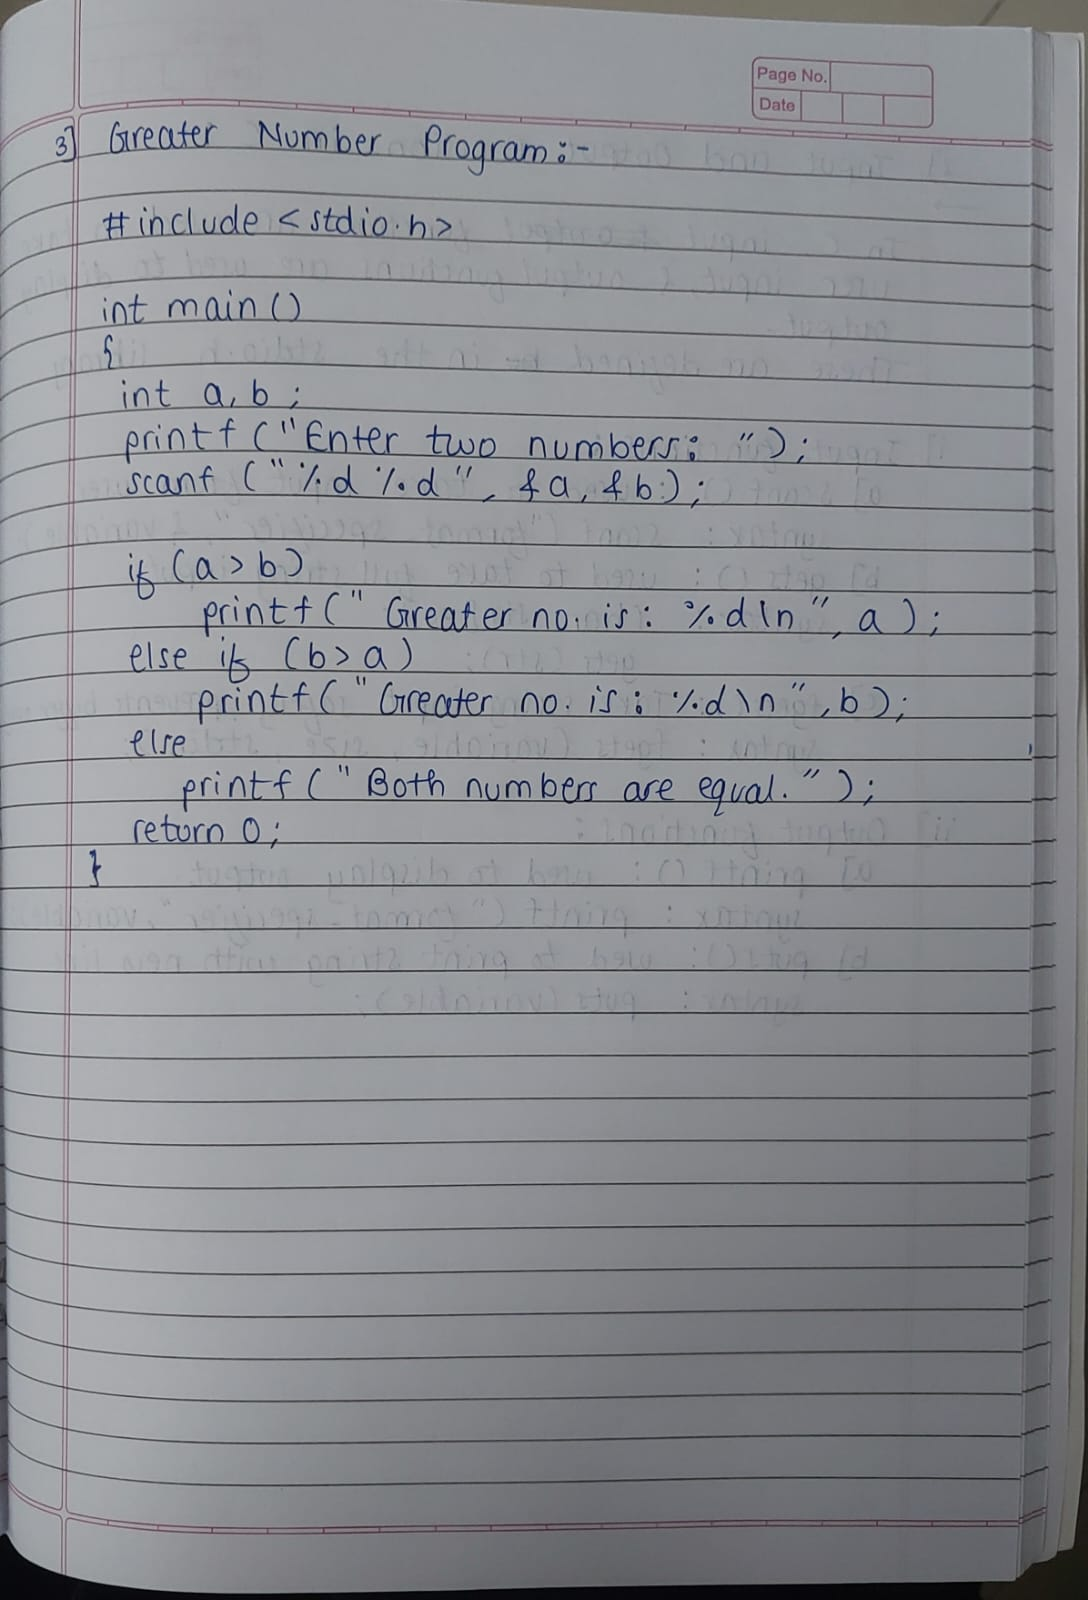 Page No.
Date
3] Greater Number Program:-
#include <stdio.h>
int main()
{
int a, b;
printf ("Enter two numbers: ");
scanf ("%d %d", &a, &b);
if (a > b)
printf (" Greater no. is: %d\n", a);
else if (b > a)
printf (" Greater no. is: %d\n", b);
else
printf (" Both numbers are equal. ");
return 0;
}